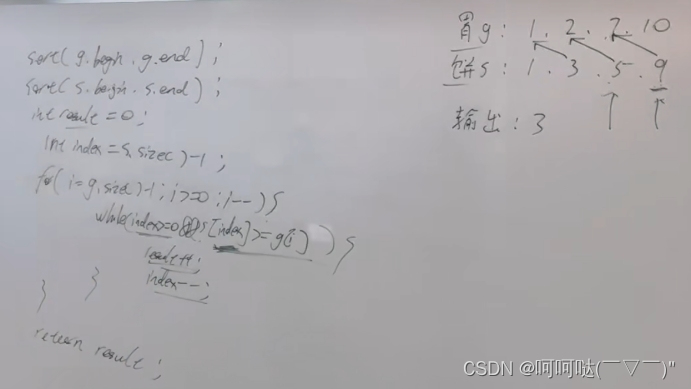 sort(g.begin.g.end);
sort(s.begin.s.end);
int result=0;
int index=s.size()-1;
for(i=g.size()-1;i>=0;i--){
while(index>=0&&s[index]>=g[i]){
result++;
index--;
}
}
return result;
胃g: 1.2.7.10
饼s: 1.3.5.9
输出: 3
CSDN @呵呵哒(￣▽￣)"